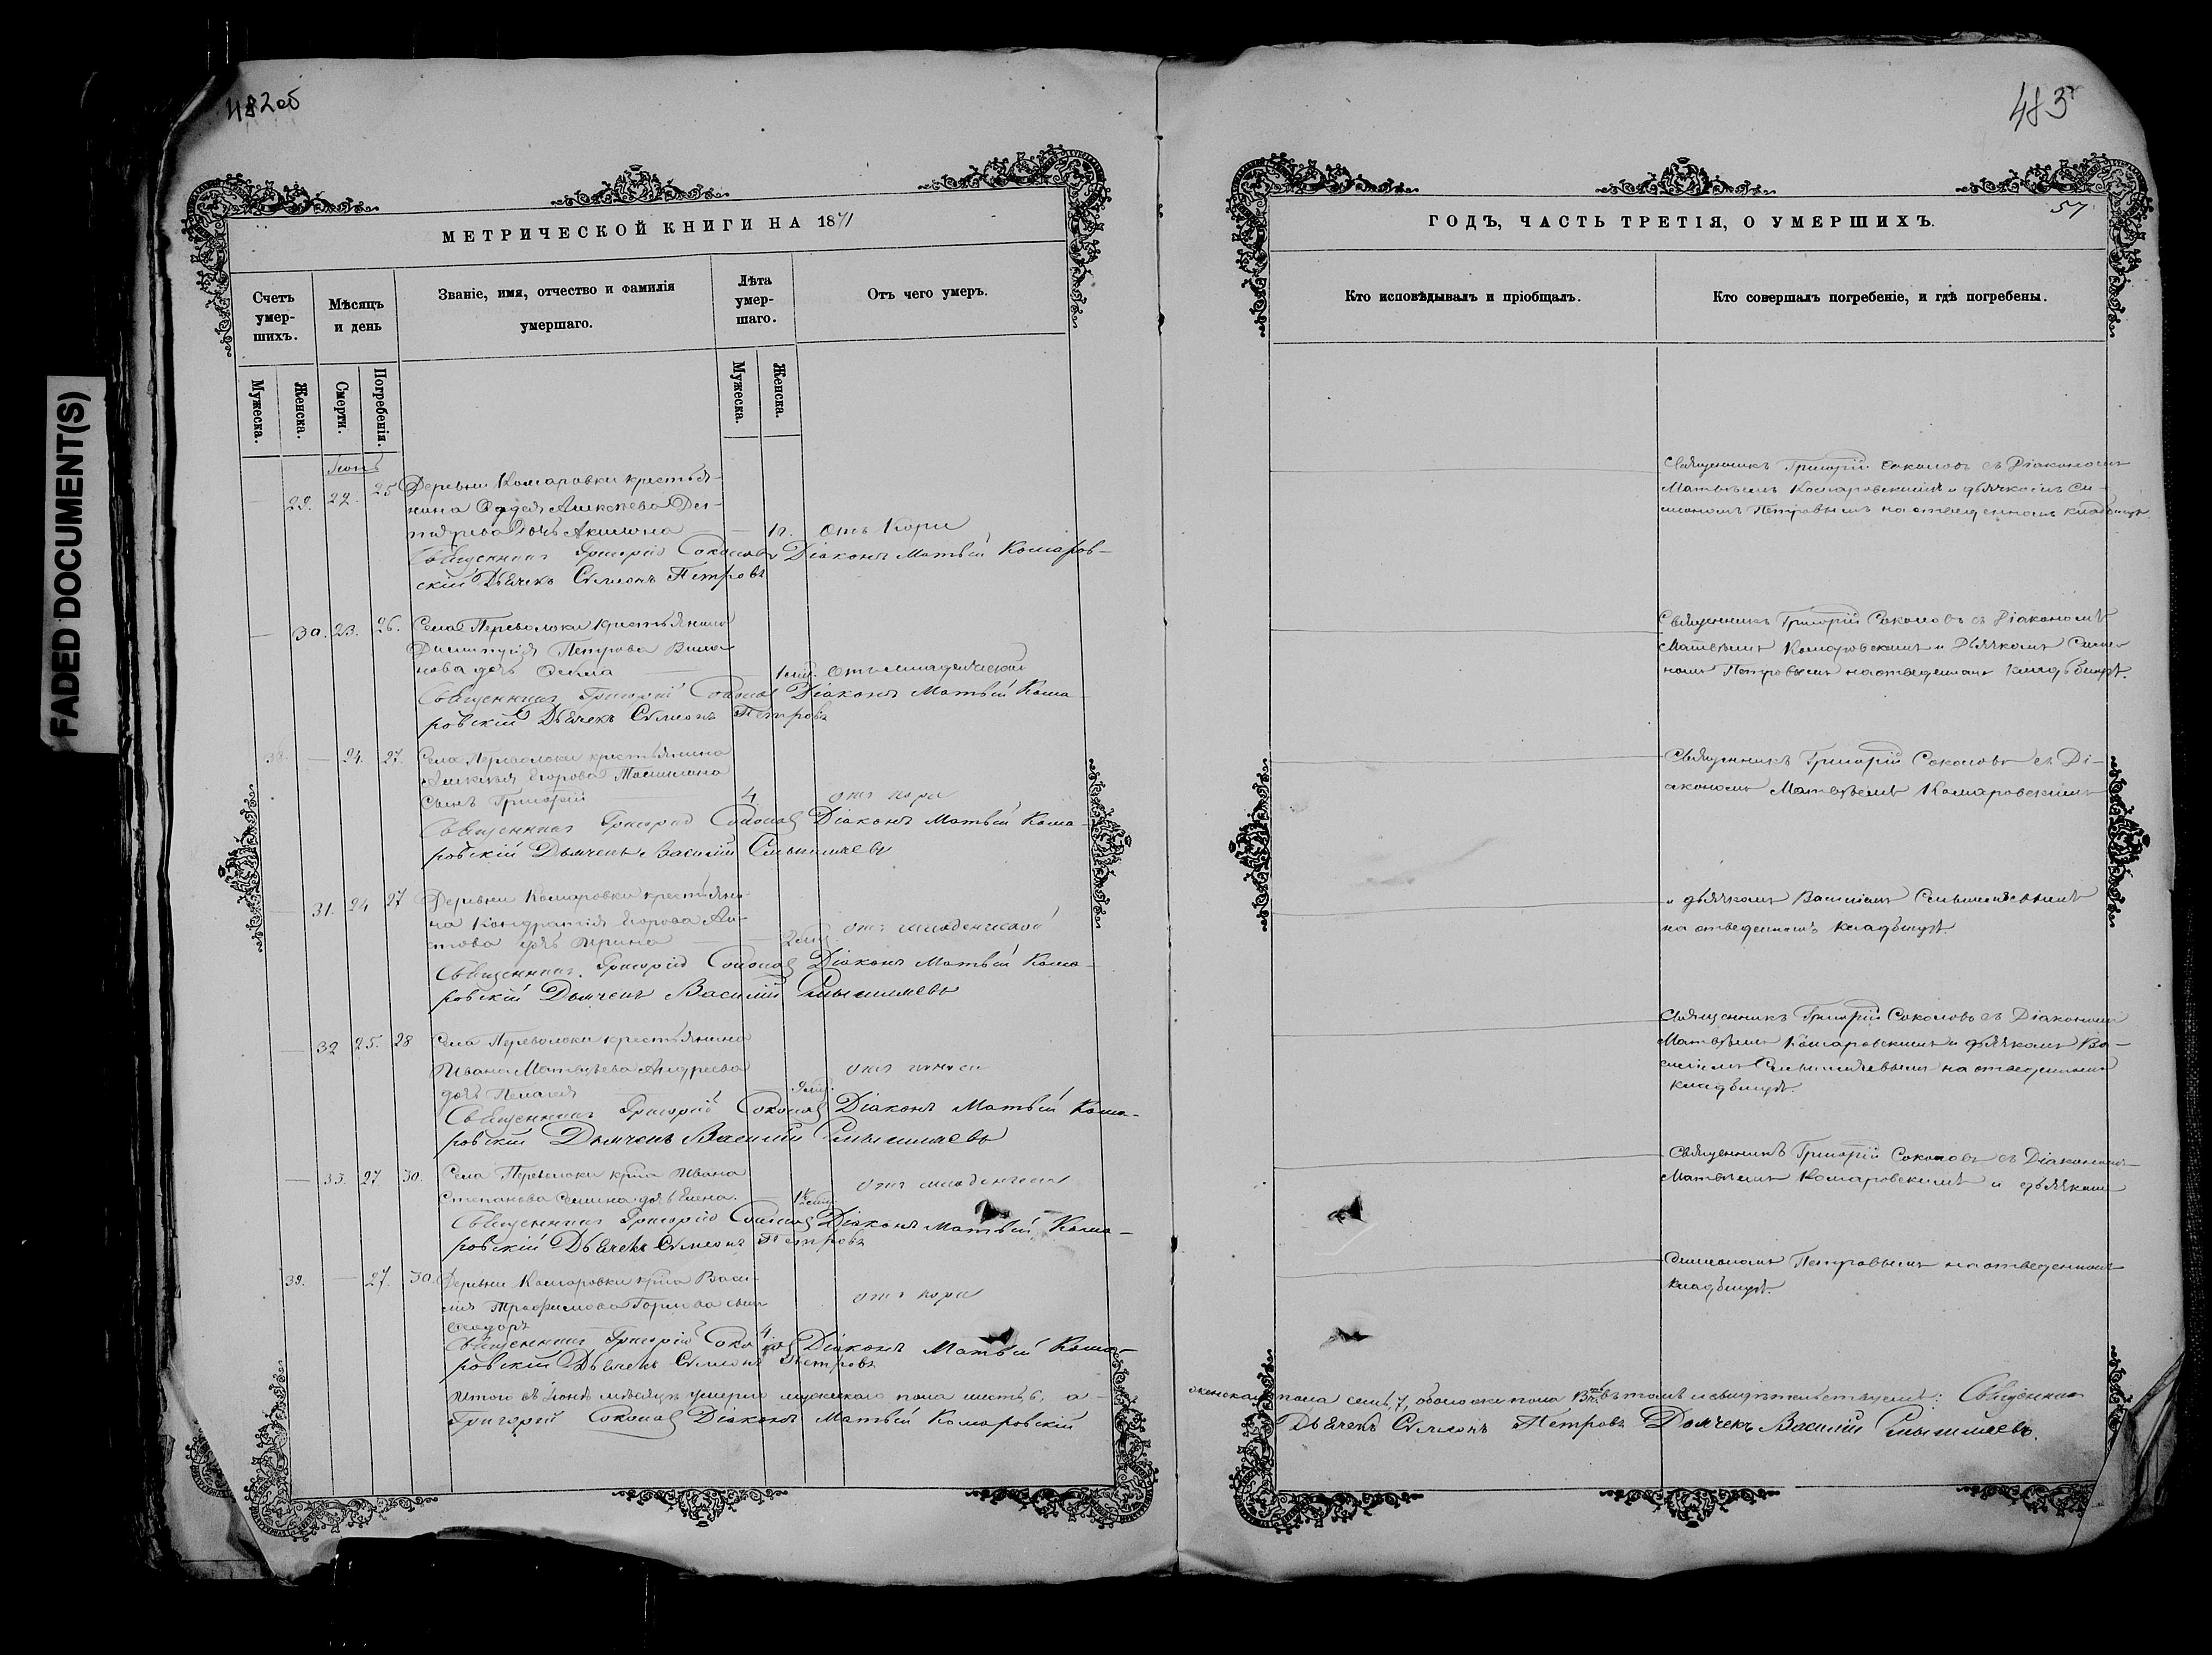 FADED DOCUMENT(S)
482об
МЕТРИЧЕСКОЙ КНИГИ НА 1871
Счетъ умер-шихъ.
Мѣсяцъ и день
Званіе, имя, отчество и фамилія умершаго.
Лѣта умер-шаго.
Отъ чего умеръ.
Мужеска.
Женска.
Смерти.
Погребенія.
Мужеска.
Женска.
Іюнь
29. 22. 25 Деревни Комаровки крестья-
нина Алексѣева
дочь Акилина
отъ кори
Священникъ Григорій Соколовъ Діаконъ Матвѣй Комаров-
скій Дьячекъ Сѵмеонъ Петровъ
30. 23. 26. Села Переволоки крестьянина
Димитрія Петрова
нова дочь
1 мѣс. отъ младенческой
Священникъ Григорій Соколовъ Діаконъ Матвѣй Кома-
ровскій Дьячекъ Сѵмеонъ Петровъ
38. — 24. 27. Села Переволоки крестьянина
Алексѣя Егорова
сынъ Григорій 4 отъ кори
Священникъ Григорій Соколовъ Діаконъ Матвѣй Кома-
ровскій Дьячекъ Василій Смышляевъ
31. 24 27 Деревни Комаровки крестьяни-
на Кондратія Егорова
дочь Ирина 2 мѣс. отъ младенческой
Священникъ Григорій Соколовъ Діаконъ Матвѣй Кома-
ровскій Дьячекъ Василій Смышляевъ
32 25. 28 Села Переволоки крестьянина
Ивана Матвѣева Андреева
дочь Пелагія
отъ поноса
Священникъ Григорій Соколовъ Діаконъ Матвѣй Кома-
ровскій Дьячекъ Василій Смышляевъ
33. 27. 30. Села Переволоки Ивана
Степанова дочь Елена.
отъ младенческой
Священникъ Григорій Соколовъ Діаконъ Матвѣй Кома-
ровскій Дьячекъ Сѵмеонъ Петровъ
39. — 27. 30. Деревни Комаровки Васи-
лія Трофимова сынъ
Ѳеодоръ 4 отъ кори
Священникъ Григорій Соколовъ Діаконъ Матвѣй Комо-
ровскій Дьячекъ Сѵмеонъ Петровъ
Итого въ Іюнѣ мѣсяцѣ умерло мужескаго пола шесть, 6, а
Григорій Соколовъ Діаконъ Матвѣй Комаровскій
483
57
ГОДЪ, ЧАСТЬ ТРЕТІЯ, О УМЕРШИХЪ.
Кто исповѣдывалъ и пріобщалъ.
Кто совершалъ погребеніе, и гдѣ погребены.
Священникъ Григорій Соколовъ съ Діакономъ
Матвѣемъ Комаровскимъ и дьячкомъ Си-
меономъ Петровымъ на отведенномъ кладбищѣ.
Священникъ Григорій Соколовъ съ Діакономъ
Матвѣемъ Комаровскимъ и Дьячкомъ Симео-
номъ Петровымъ на отведенномъ кладбищѣ.
Священникъ Григорій Соколовъ съ Ді-
акономъ Матвѣемъ Комаровскимъ
и дьячкомъ Василіемъ Смышляевымъ
на отведенномъ кладбищѣ.
Священникъ Григорій Соколовъ съ Діакономъ
Матвѣемъ Комаровскимъ и дьячкомъ Ва-
силіемъ Смышляевымъ на отведенномъ
кладбищѣ.
Священникъ Григорій Соколовъ съ Діакономъ
Матвѣемъ Комаровскимъ и дьячкомъ
Симеономъ Петровымъ на отведенномъ
кладбищѣ.
женскаго пола семь, 7, обоего же пола 13, въ томъ и свидѣтельствуемъ: Священникъ
Дьячекъ Сѵмеонъ Петровъ Дьячекъ Василій Смышляевъ.